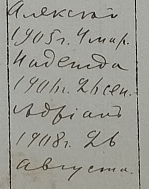 Алексей
1905 г. 4 мар.
Надежда
1906 г. 26 сен.
Адріан
1908 г. 26
августа.